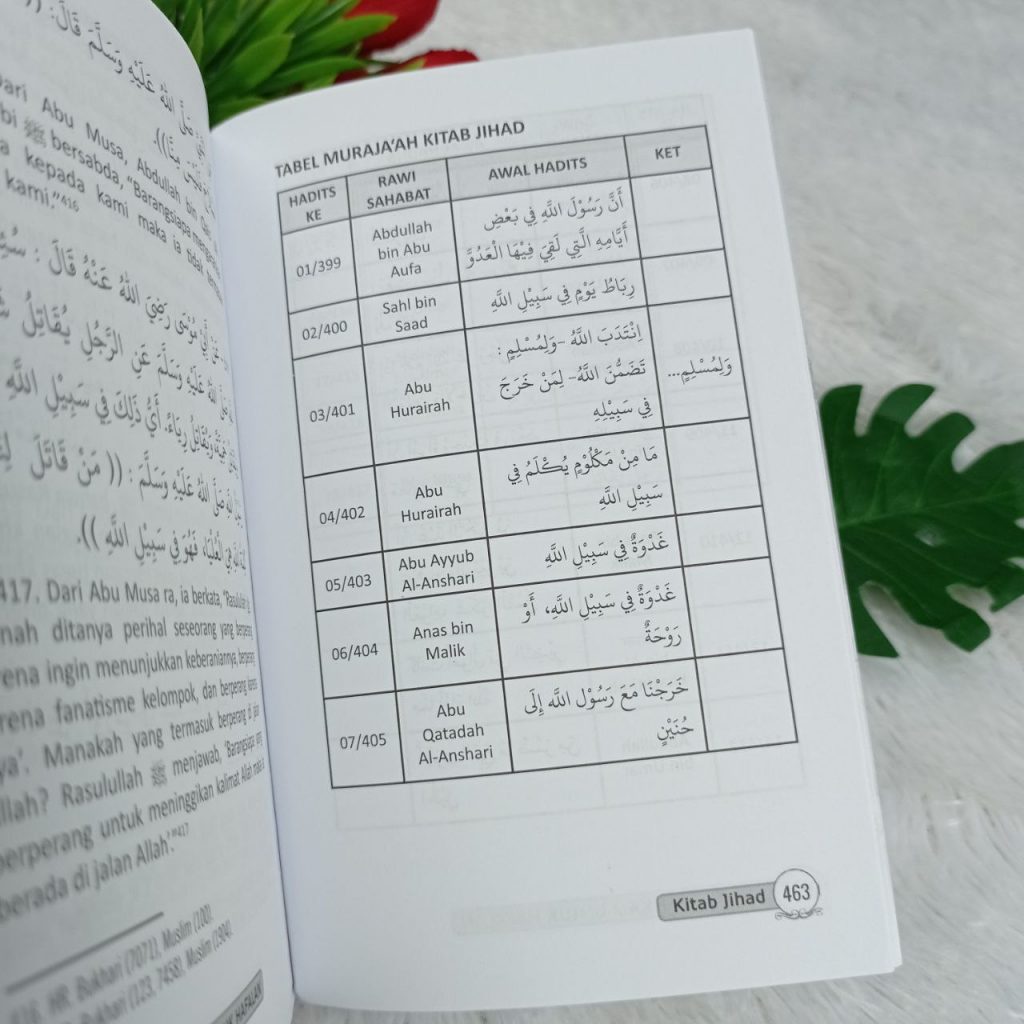 صَلَّى اللهُ عَلَيْهِ وَسَلَّمَ قَالَ: ((
Dari Abu Musa, Abdullah bin
ﷺ bersabda, "Barangsiapa
kepada kami maka ia tidak
kami."416
مُوْسَى رَضِيَ اللهُ عَنْهُ قَالَ :
اللهُ عَلَيْهِ وَسَلَّمَ عَنِ الرَّجُلِ يُقَاتِلُ
وَيُقَاتِلُ رِيَاءً. أَيُّ ذَلِكَ فِي سَبِيْلِ اللَّهِ
صَلَّى اللهُ عَلَيْهِ وَسَلَّمَ: (( مَنْ قَاتَلَ
فَهُوَ فِي سَبِيْلِ اللَّهِ )).
417. Dari Abu Musa ra, ia berkata, "Rasulullah
ditanya perihal seseorang yang berperang
ingin menunjukkan keberaniannya, berperang
fanatisme kelompok, dan berperang karena
Manakah yang termasuk berperang di jalan
Allah? Rasulullah ﷺ menjawab, 'Barangsiapa yang
berperang untuk meninggikan kalimat Allah maka ia
berada di jalan Allah'."417
416. HR. Bukhari (7071), Muslim (100).
Bukhari (123, 7458), Muslim (1904).
HAFALAN
TABEL MURAJA'AH KITAB JIHAD
HADITS KE RAWI SAHABAT AWAL HADITS KET
01/399 Abdullah bin Abu Aufa أَنَّ رَسُوْلَ اللَّهِ فِي بَعْضِ
أَيَّامِهِ الَّتِي لَقِيَ فِيْهَا الْعَدُوَّ
02/400 Sahl bin Saad رِبَاطُ يَوْمٍ فِي سَبِيْلِ اللَّهِ
03/401 Abu Hurairah اِنْتَدَبَ اللَّهُ -وَلِمُسْلِمٍ :
تَضَمَّنَ اللَّهُ- لِمَنْ خَرَجَ
فِي سَبِيْلِهِ
وَلِمُسْلِمٍ...
04/402 Abu Hurairah مَا مِنْ مَكْلُوْمٍ يُكْلَمُ فِي
سَبِيْلِ اللَّهِ
05/403 Abu Ayyub Al-Anshari غَدْوَةٌ فِي سَبِيْلِ اللَّهِ
06/404 Anas bin Malik غَدْوَةٌ فِي سَبِيْلِ اللَّهِ، أَوْ
رَوْحَةٌ
07/405 Abu Qatadah Al-Anshari خَرَجْنَا مَعَ رَسُوْلِ اللَّه إِلَى
حُنَيْنٍ
Kitab Jihad 463